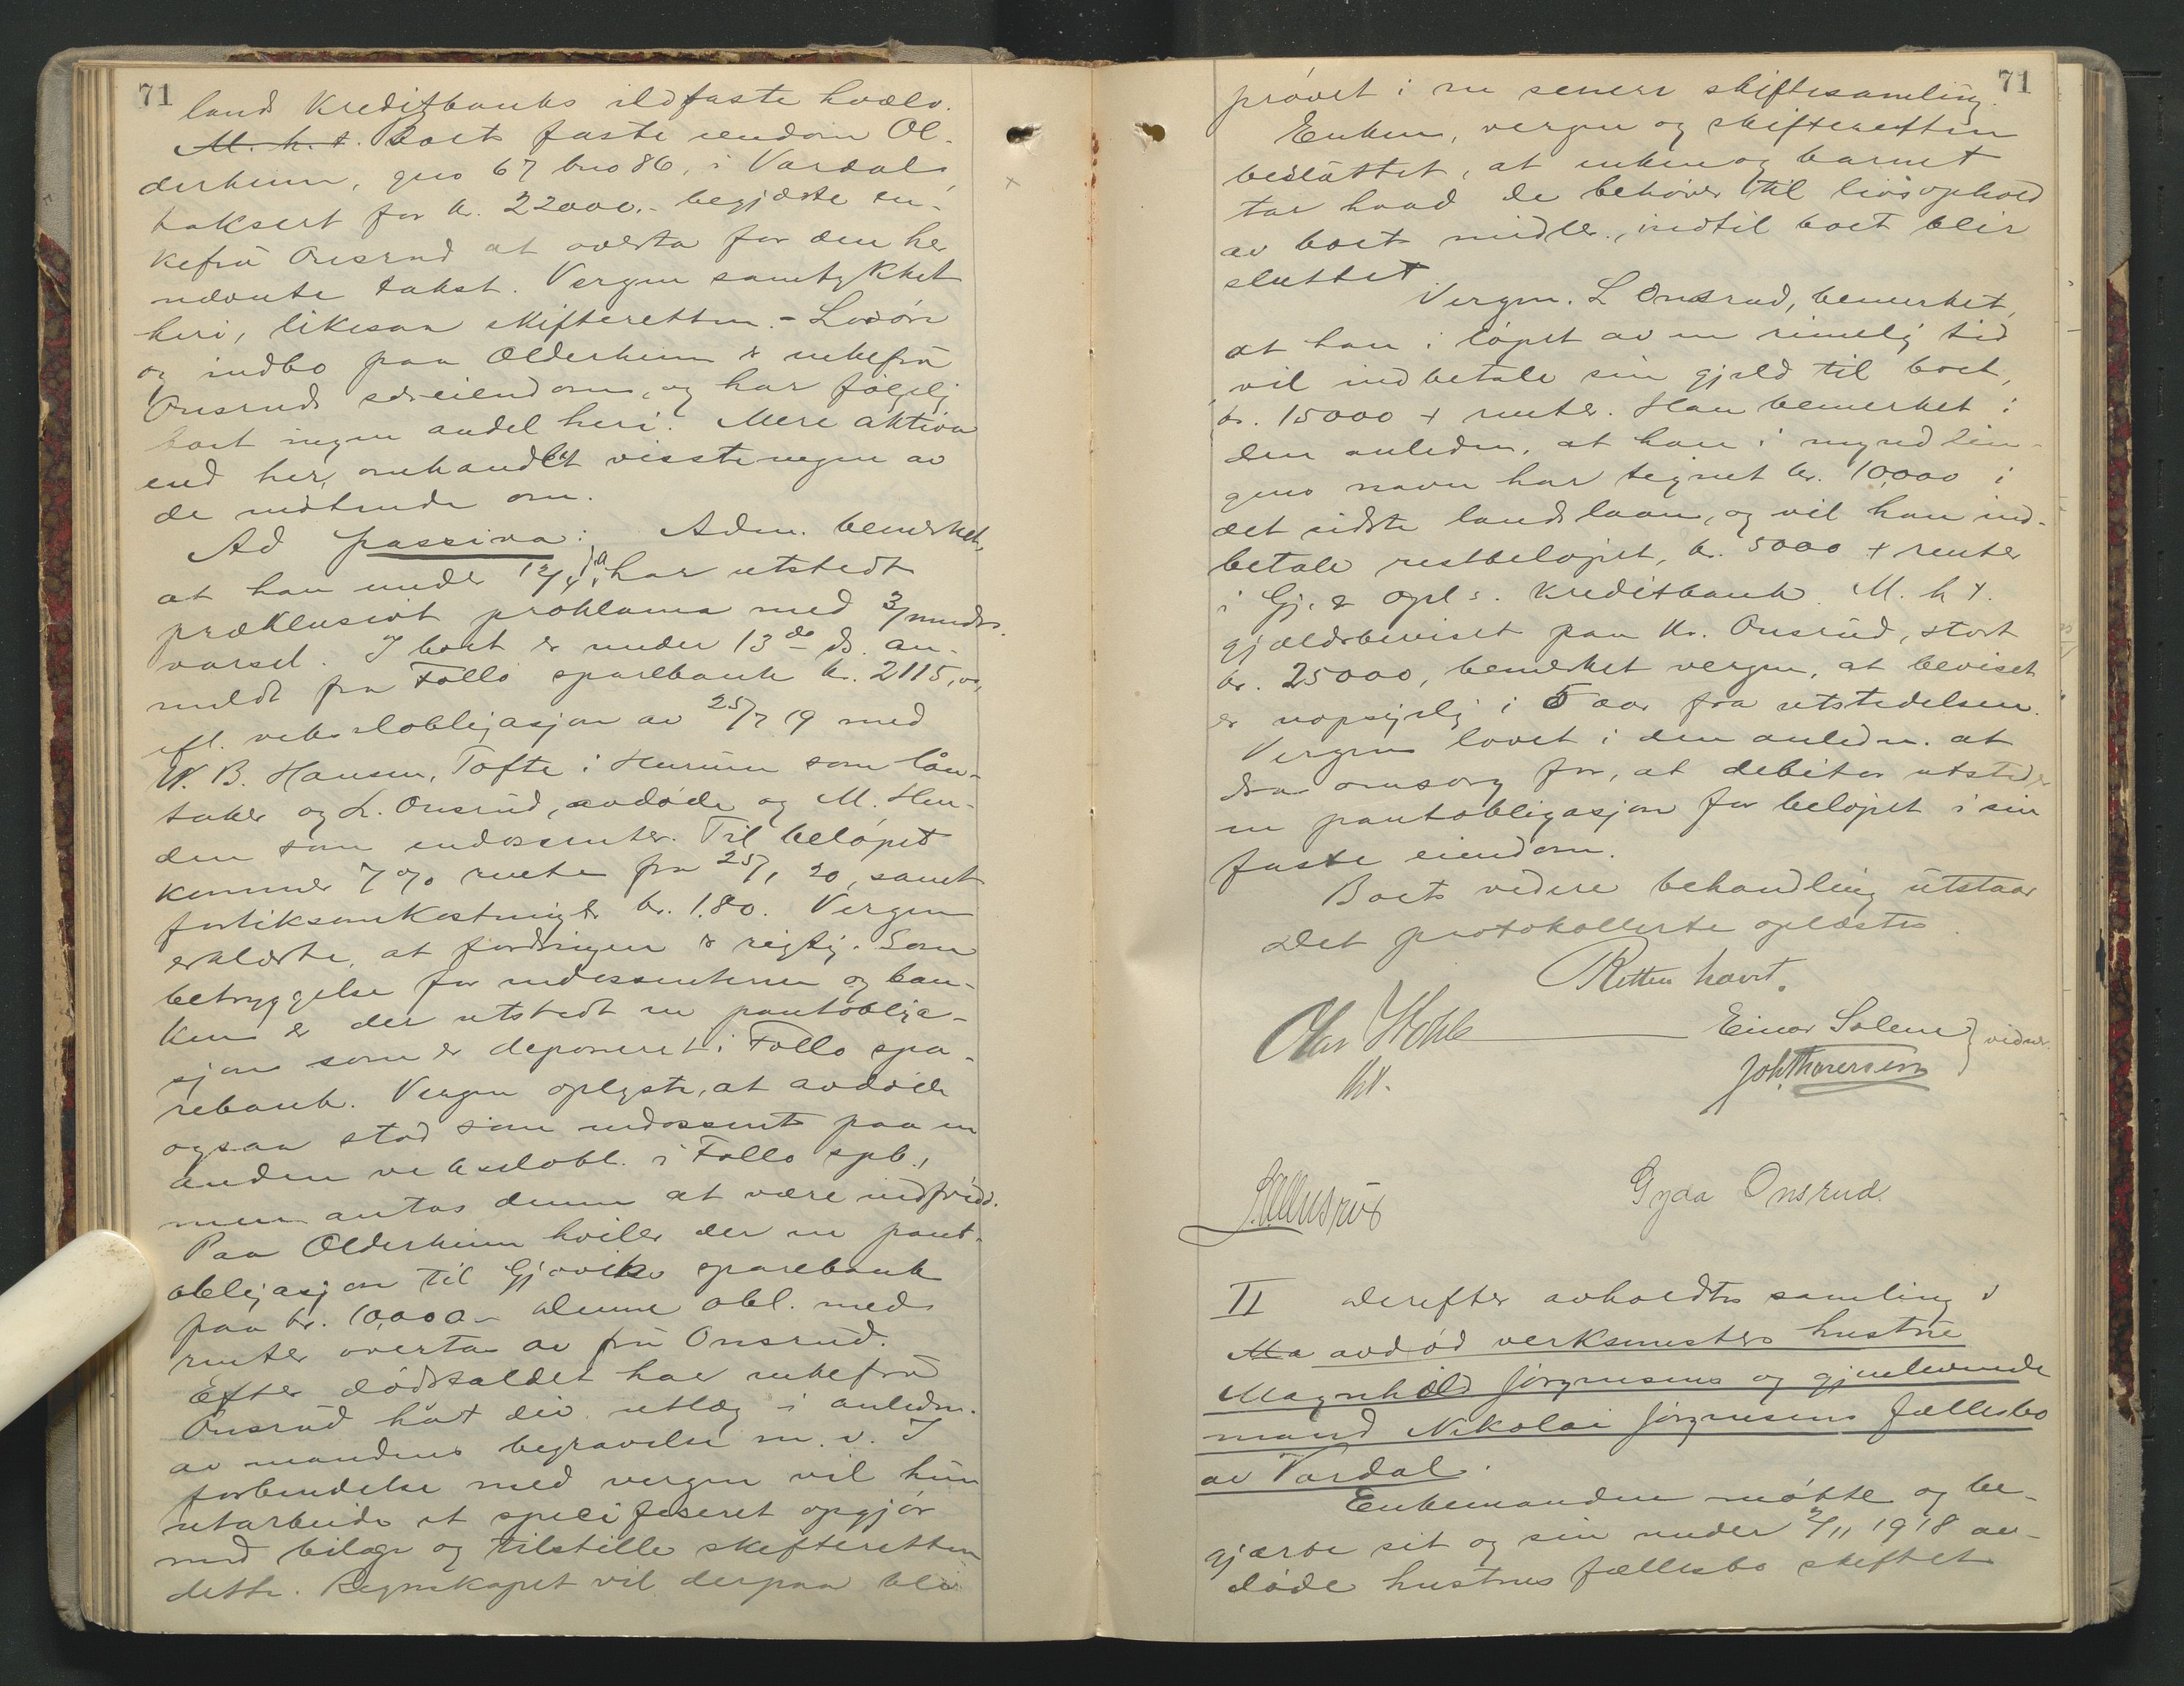 71
lands Kreditbanks ildfaste hvælv.
M. h. t. Boets faste eiendom Ol-
derheim, gno 67 bno 86, i Vardal,
taksert for kr. 22000.- begjærte en-
kefru Onsrud at overta for den her
nævnte takst. Vergen samtykket
heri, likesaa skifteretten. - Løsøre
og indbo paa Olderheim er enkefru
Onsruds særeiendom, og har følgelig
boet ingen andel heri. Mere aktiva
end her omhandlet visste ingen av
de møtende om.
Ad passiva: Adm. bemerket,
at han under 12/4 d.a. har utstedt
præklusivt proklama med 3 mndrs.
varsel. I boet er under 13de ds. an-
meldt fra Follo sparebank kr. 2115,00,
efl. vekselobligasjon av 25/7 19 med
N. B. Hansen, Tofte i Hurum som lån-
taker og L. Onsrud, avdøde og M. Hau-
den som endossenter. Til beløpet
kommer 7% rente fra 25/1 20, samt
fortiksomkostninger kr. 1.80. Vergen
erklærte, at fordringen er rigtig. Som
betryggelse for endossenterne og ban-
ken er der utstedt en pantobliga-
sjon som er deponeret i Follo spa-
rebank. Vergen oplyste, at avdøde
ogsaa stod som endossent paa en
anden vekselobl. i Follo spb.,
men antas denne at være indfridd.
Paa Olderheim hviler der en pant-
obligasjon til Gjøviks sparebank
paa kr. 10,000 - Denne obl. med
renter overta av fru Onsrud.
Efter dødsfaldet har enkefru
Onsrud hat div. utlæg i anledn.
av mandens begravelse m. v. I
forbindelse med vergen vil hun
utarbeide et specifiseret opgjør
med bilage og tilstille skifteretten
dette. Regnskapet vil derpaa bli
71
prøvet i en senere skiftesamling.
Enken, vergen og skifteretten
besluttet, at enken og barnet
tar hvad de behøver til livsophold
av boets midler, indtil boet blir
sluttet
Vergen. L Onsrud, bemerket,
at han i løpet av en rimelig tid
vil indbetale sin gjæld til boet,
kr. 15000 + renter. Han bemerket i
den anledn., at han i myndlin-
gens navn har tegnet kr. 10,000 i
det sidste landslaan, og vil han ind-
betale restbeløpet, kr. 5000 + renter
i Gj. & Opl s. Kreditbank. M. h t.
gjældsbeviset paa Kr. Onsrud, stort
kr. 25000, bemerket vergen, at beviset
er uopsigelig i 5 aar fra utstedelsen.
Vergen lovet i den anledn. at
dra omsorg for, at debitor utsteder
en pantobligasjon for beløpet i sin
faste eiendom.
Boets videre behandling utstaar
Det protokollerte oplæstes.
Retten hævet.
Einar Solem } vidner.
Joh. Thoresen
Gyda Onsrud.
II Derefter avholdtes samling i
Ma avdød verksmesters hustru
Magnhild Jørgensens og gjenlevende
mand Nikolai Jørgensens fællesbo
av Vardal.
Enkemanden møtte og be-
gjærte sit og sin under 2/11 1918 av-
døde hustrus fællesbo skiftet